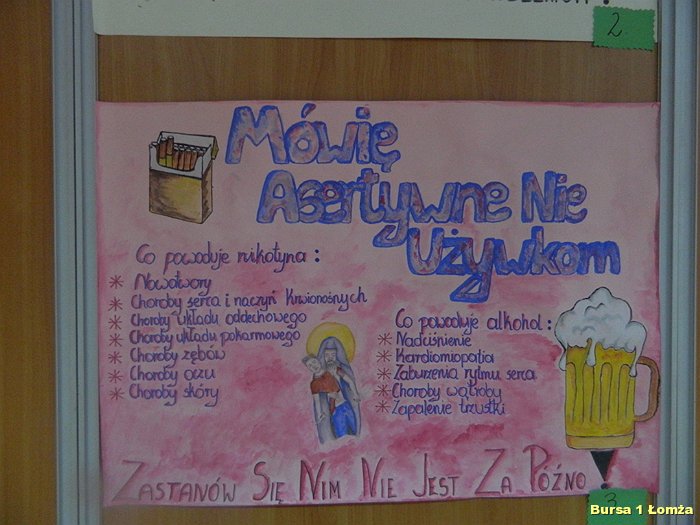 2
Mówię
Asertywne Nie
Używkom
Co powoduje nikotyna:
* Nowotwory
* Choroby serca i naczyń krwionośnych
* Choroby układu oddechowego
* Choroby układu pokarmowego
* Choroby zębów
* Choroby oczu
* Choroby skóry
Co powoduje alkohol:
* Nadciśnienie
* Kardiomiopatia
* Zaburzenia rytmu serca
* Choroby wątroby
* Zapalenie trzustki
Zastanów Się Nim Nie Jest Za Późno!
3
Bursa 1 Łomża